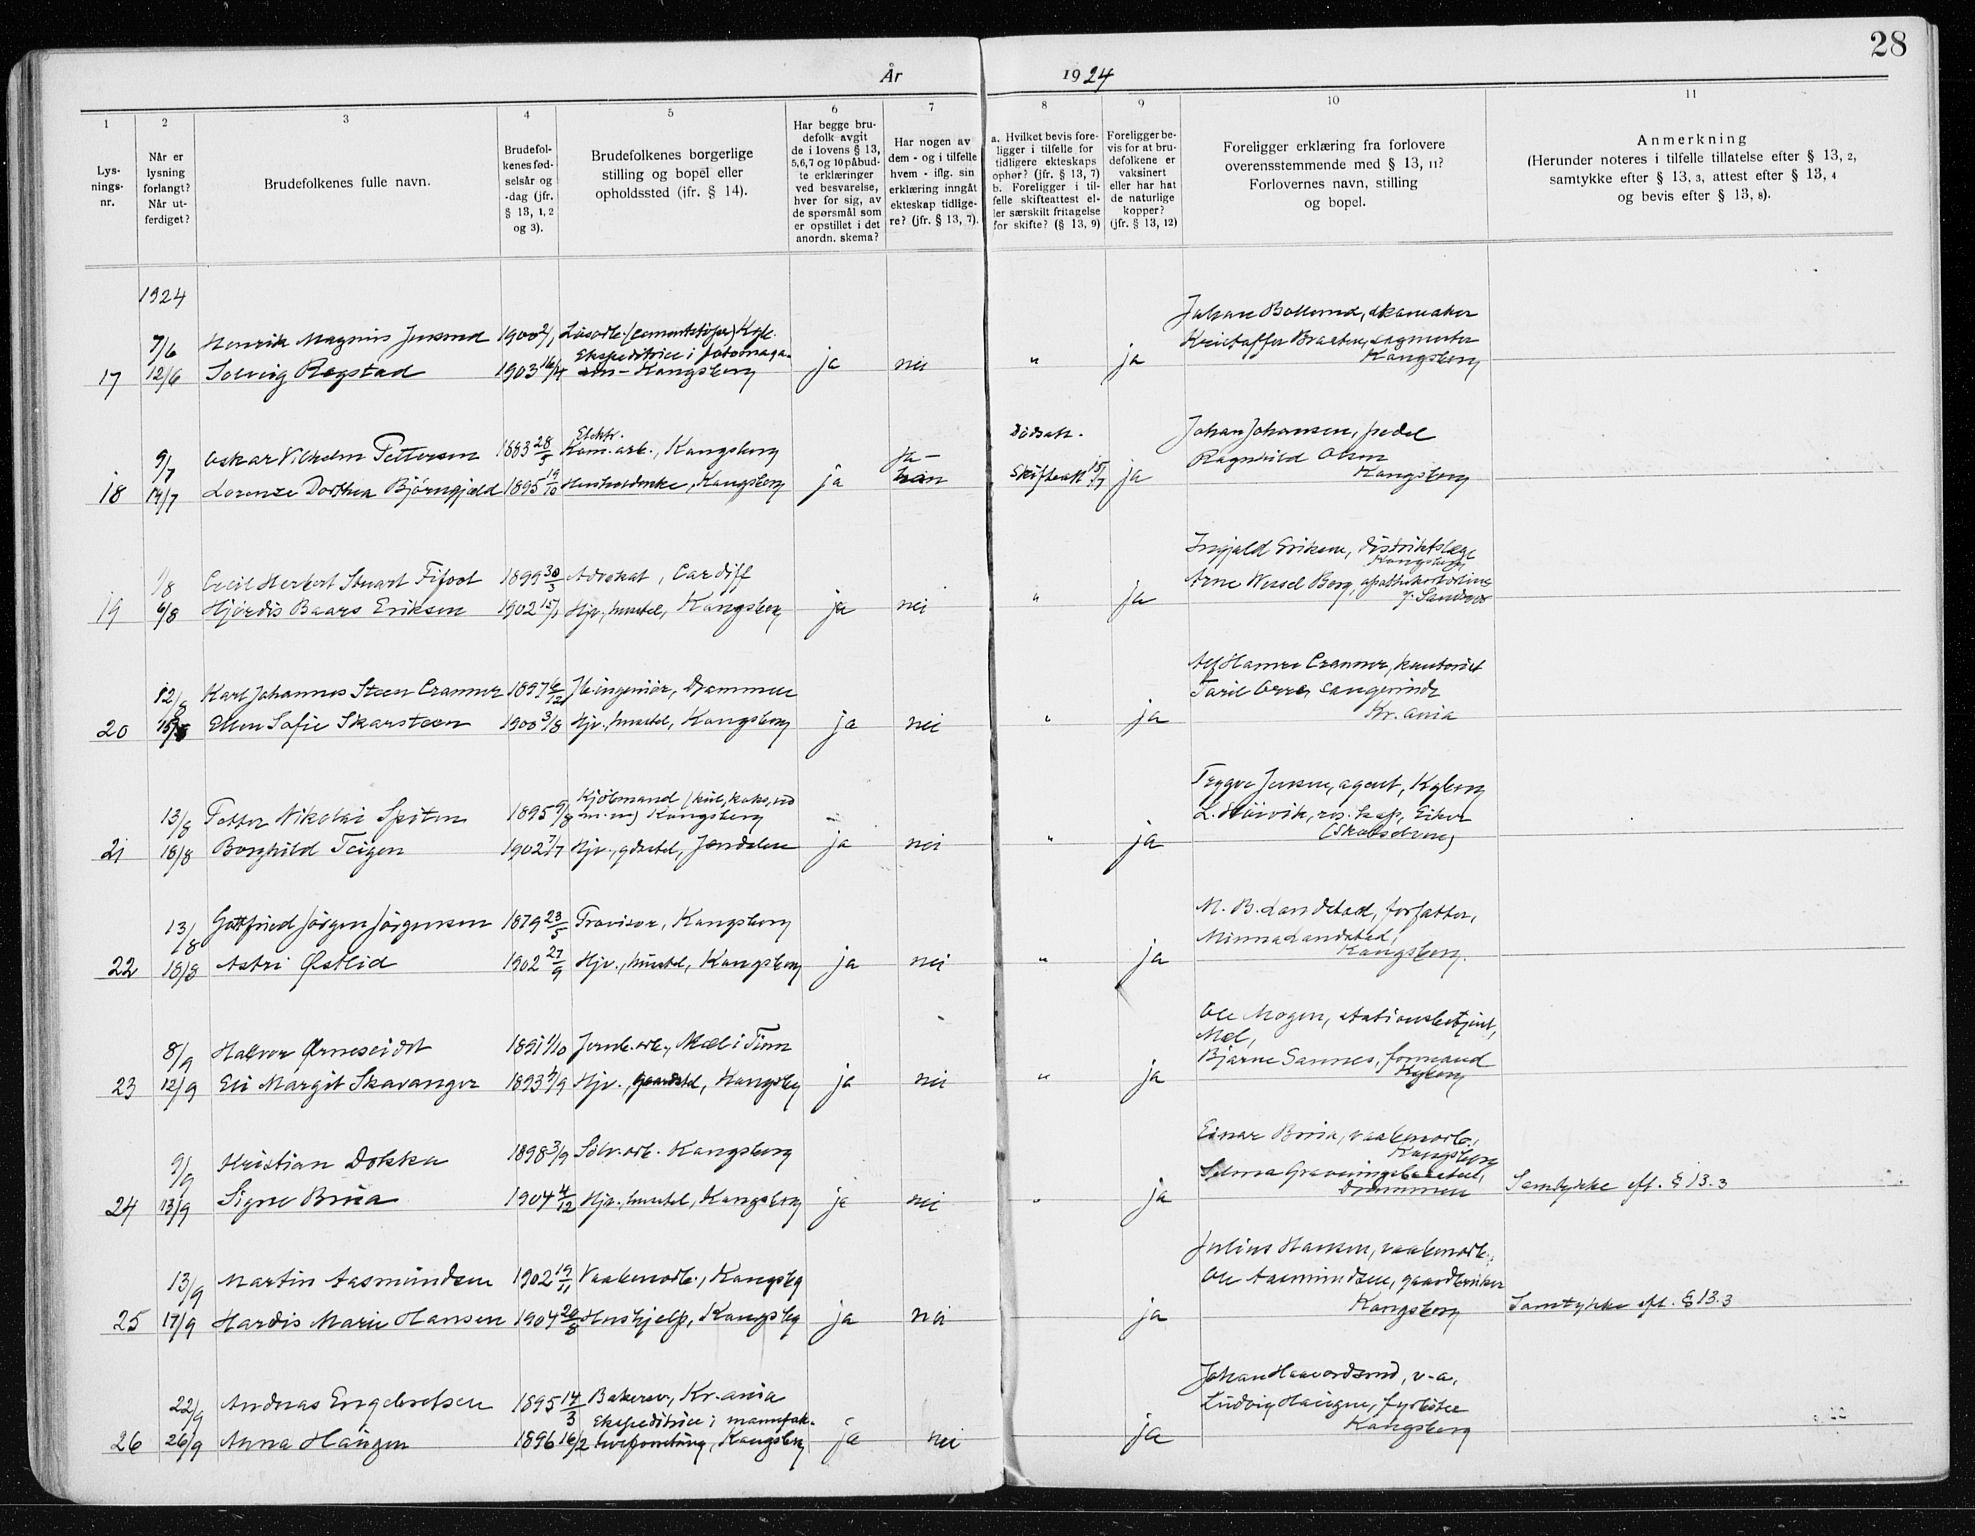 28
År 1924
1 2 3 4 5 6 7 8 9 10 11
Lysningsnr.
Når er lysning forlangt? Når utferdiget?
Brudefolkenes fulle navn.
Brudefolkenes fødselsår og -dag (jfr. § 13, 1, 2 og 3).
Brudefolkenes borgerlige stilling og bopel eller opholdssted (jfr. § 14).
Har begge brudefolk avgit de i lovens § 13, 5,6,7 og 10 påbudte erklæringer ved besvarelse, hver for sig, av de spørsmål som er opstillet i det anordn. skema?
Har nogen av dem - og i tilfelle hvem - iflg. sin erklæring inngått ekteskap tidligere? (jfr. § 13, 7).
a. Hvilket bevis foreligger i tilfelle for tidligere ekteskaps ophør? (jfr. § 13, 7)
b. Foreligger i tilfelle skifteattest eller særskilt fritagelse for skifte? (§ 13, 9)
Foreligger bevis for at brudefolkene er vaksinert eller har hat de naturlige kopper? (jfr. § 13, 12)
Foreligger erklæring fra forlovere overensstemmende med § 13, 11? Forlovernes navn, stilling og bopel.
Anmerkning (Herunder noteres i tilfelle tillatelse efter § 13, 2, samtykke efter § 13, 3, attest efter § 13, 4 og bevis efter § 13, 8).
1924
Johan Bollerud, skomaker
7/6 Henrik Magnus Jensrud 1900 2/1 Løsarb. (cementstøper) Kgb. Kristoffer Braaten, sagmester
Ekspeditrice i
17 12/6 Solveig Rogstad 1903 16/4 Kongsberg ja nei " ja Kongsberg
Elektr. Dødsatt. Johan Johansen, pedel
9/7 Oskar Vilhelm Pettersen 1883 28/5 Kom. arb., Kongsberg ja- Ragnhild Olsen
18 14/7 Lorense Dorthea Bjørngjeld 1895 19/10 Husholderske, Kongsberg ja han Skifteatt 15/7 ja Kongsberg
Ingjald Eriksen, distriktslæge
Kongsberg
1/8 Cecil Herbert Stuart Fifoot 1899 30/3 Advokat, Cardiff Arne Wessel Berg,
19 6/8 Hjørdis Baars Eriksen 1902 15/1 Hjv., husstel, Kongsberg ja nei " ja
12/8 Karl Johannes Steen Cranner 1897 6/12 Jb.ingeniør, Drammen Sangerinde
20 15/8 Ellen Sofie Skarsteen 1900 3/8 Hjv. husstel, Kongsberg ja nei " ja Kr.ania
Trygve Jensen, agent, Kgberg
Kjøbmand (kul, koks, ved
13/8 Petter Nikolai Spiten 1895 9/8 m.m) Kongsberg Eiker
21 18/8 Borghild Teigen 1902 7/7 Hjv., gdsstel, Jondalen ja nei " ja (Skotselven)
M. B. Landstad, forfatter,
13/8 Gottfried Jørgen Jørgensen 1879 23/5 Provisor, Kongsberg Minna Landstad,
22 18/8 Astri Østlid 1902 27/9 Hjv., husstel, Kongsberg ja nei " ja Kongsberg.
Ole Mogen, stationsbetjent,
Mæl,
8/9 Halvor Ørneseidet 1891 1/10 Jernb. arb., Mæl i Tinn Bjarne Sannes, formand
23 12/9 Eli Margit Skavanger 1893 4/9 Hjv., gaardstel, Kongsbg ja nei " ja Kgberg
Einar Brua, vaabenarb.,
Kongsberg
9/9 Kristian Dokka 1898 3/9 Sølv. arb. Kongsberg Selma
24 13/9 Signe Brua 1904 4/12 Hjv., husstel, Kongsberg ja nei " ja Drammen Samtykke eft. § 13.3
Julius Hansen, vaabenarb.,
13/9 Martin Aasmundsen 1902 19/11 Vaabenarb., Kongsbg Ole Aasmundsen, gaardbruker
25 17/9 Hardis Marie Hansen 1904 26/8 Hushjelp, Kongsbg ja nei ja Kongsberg Samtykke eft. § 13.3
Johan Haavardsrud, v-a.
22/9 Andreas Engebretsen 1895 14/3 Bakersv., Kr.ania Ludvig Haugen, fyrbøter
Ekspeditrice i manufak-
26 26/9 Anna Haugen 1896 16/2 turforretning, Kongsberg ja nei ja Kongsberg